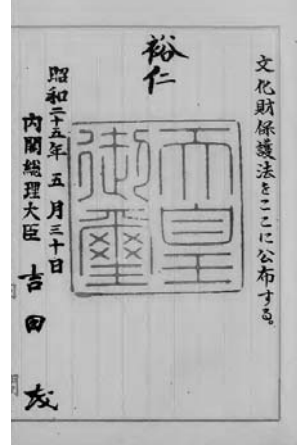 文化財保護法をここに公布する。
裕仁
天皇
御璽
昭和二十五年五月三十日
内閣総理大臣 吉田茂